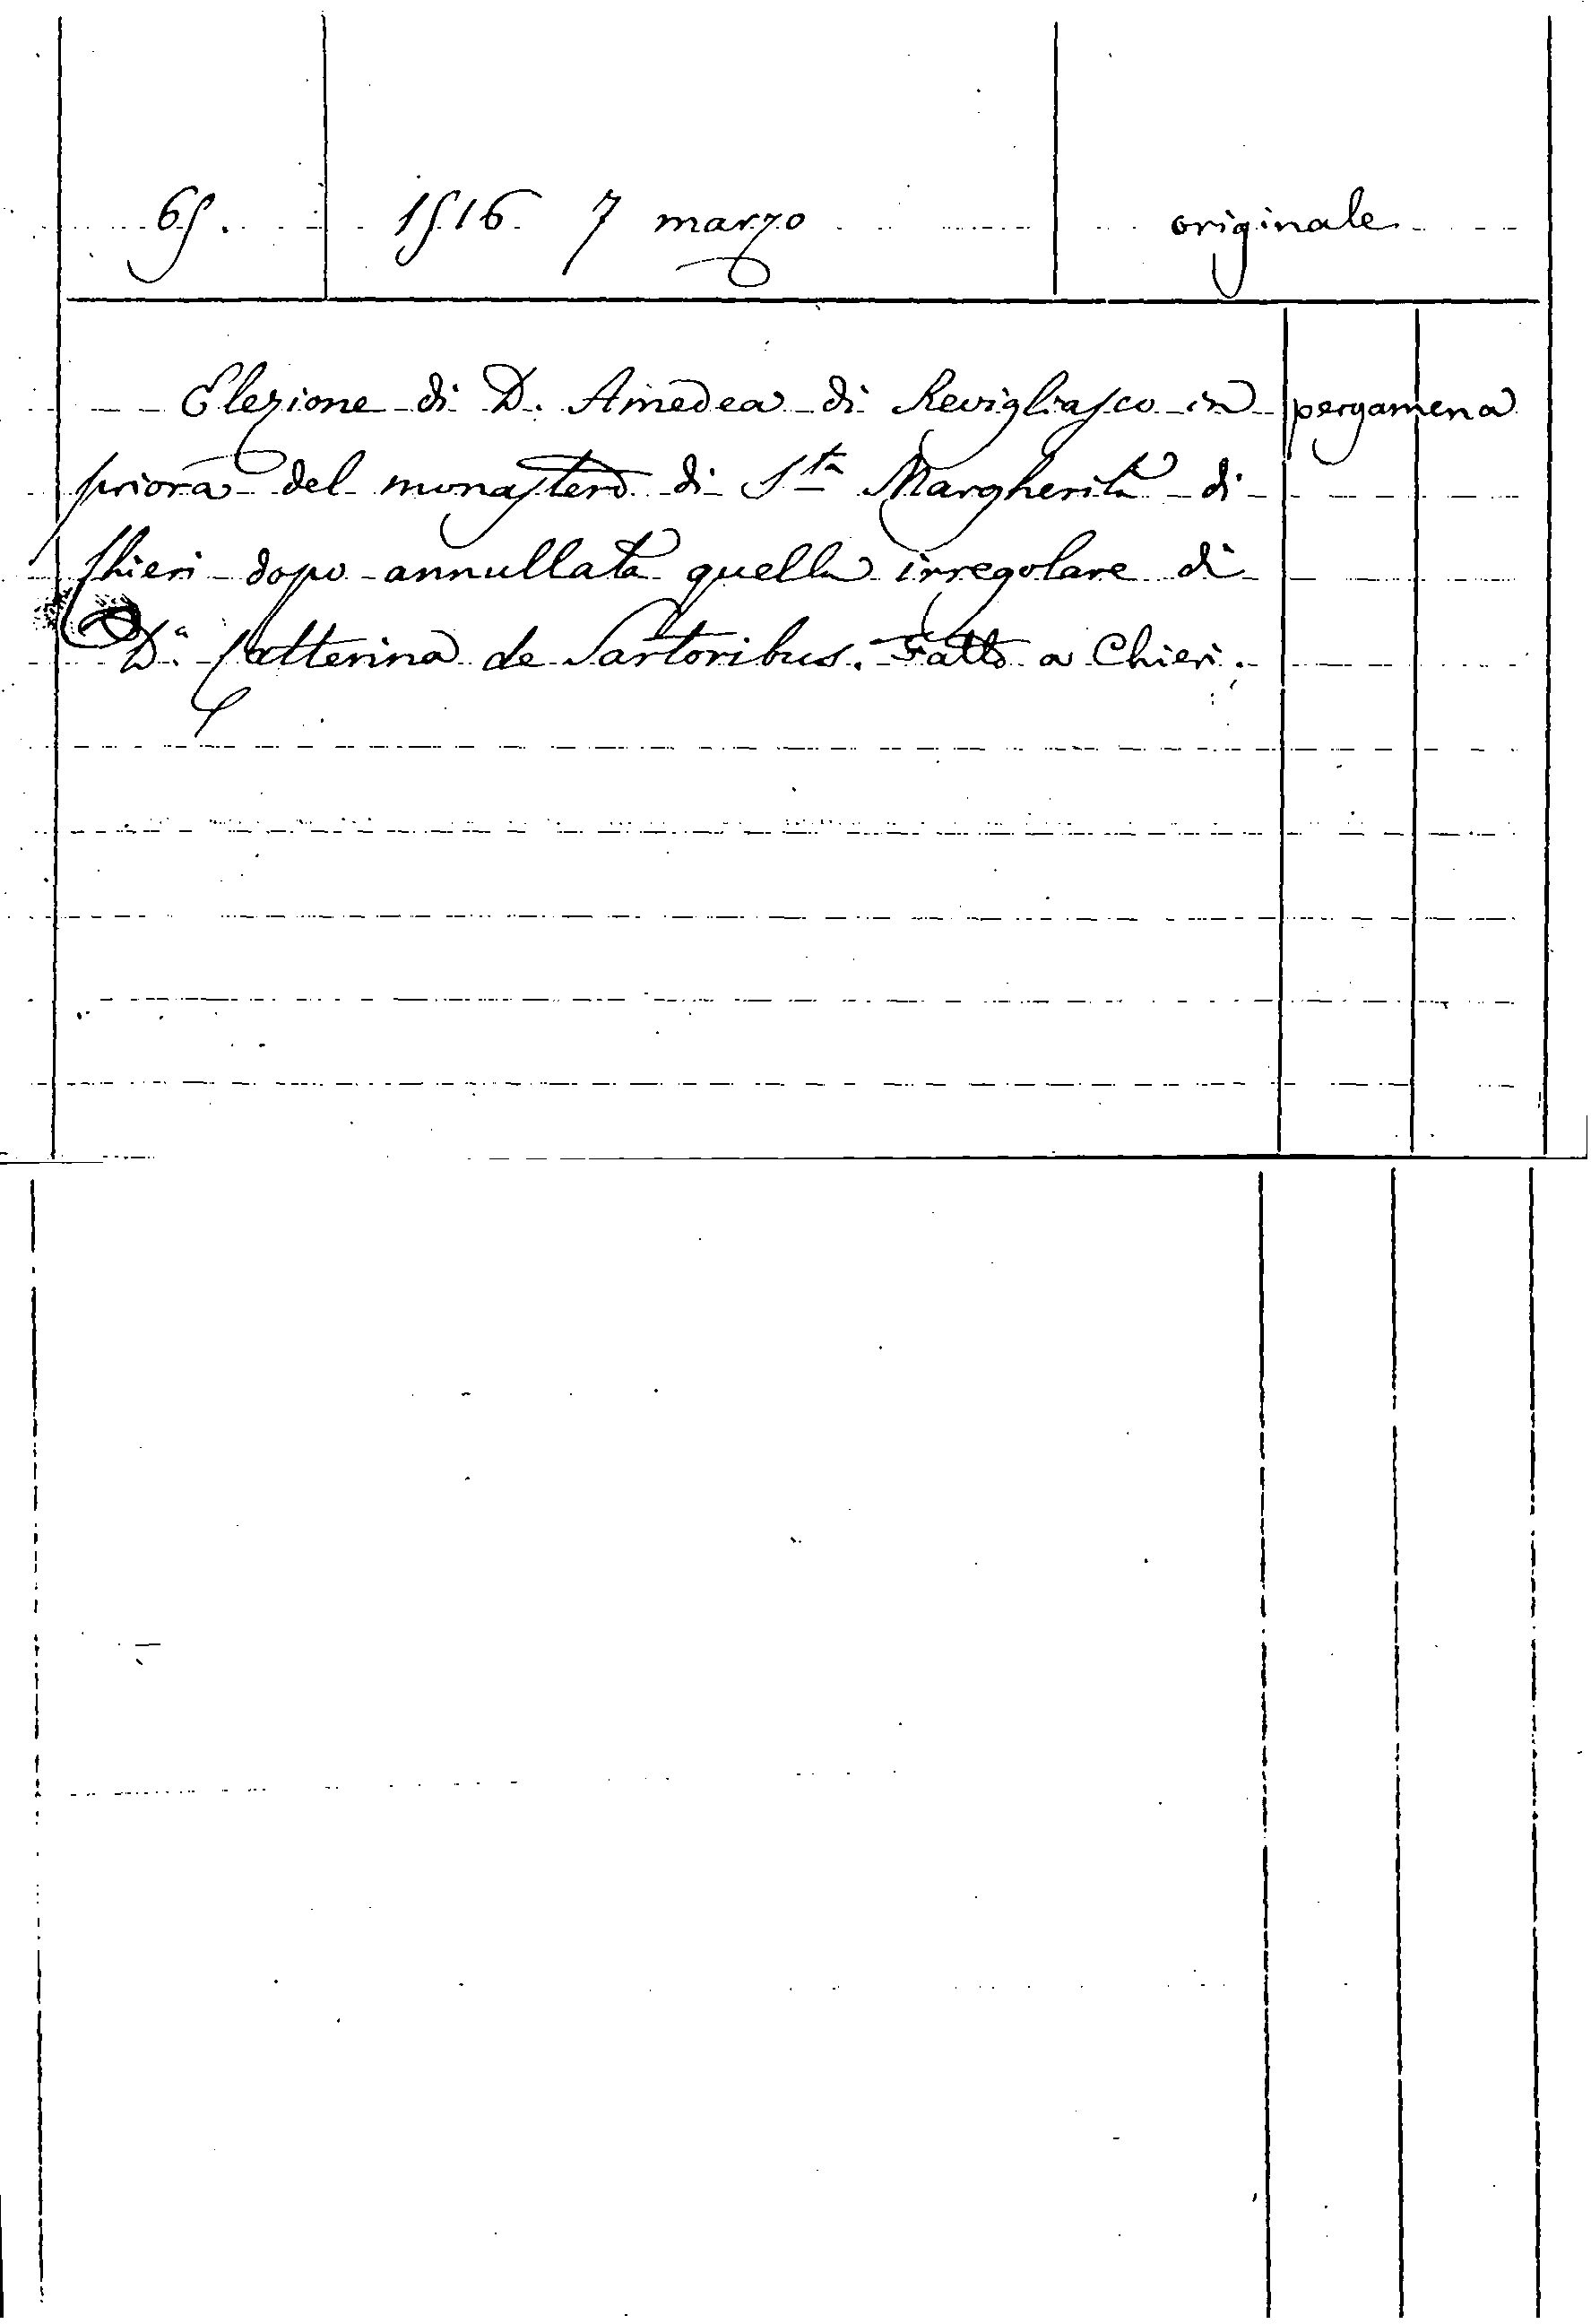 65. 1516 7 marzo originale
Elezione di D. Amedea di Revigliasco in pergamena
priora del monastero di S.ta Margherita di
Chieri dopo annullata quella irregolare di
D.a Catterina de Sartoribus. Fatto a Chieri.